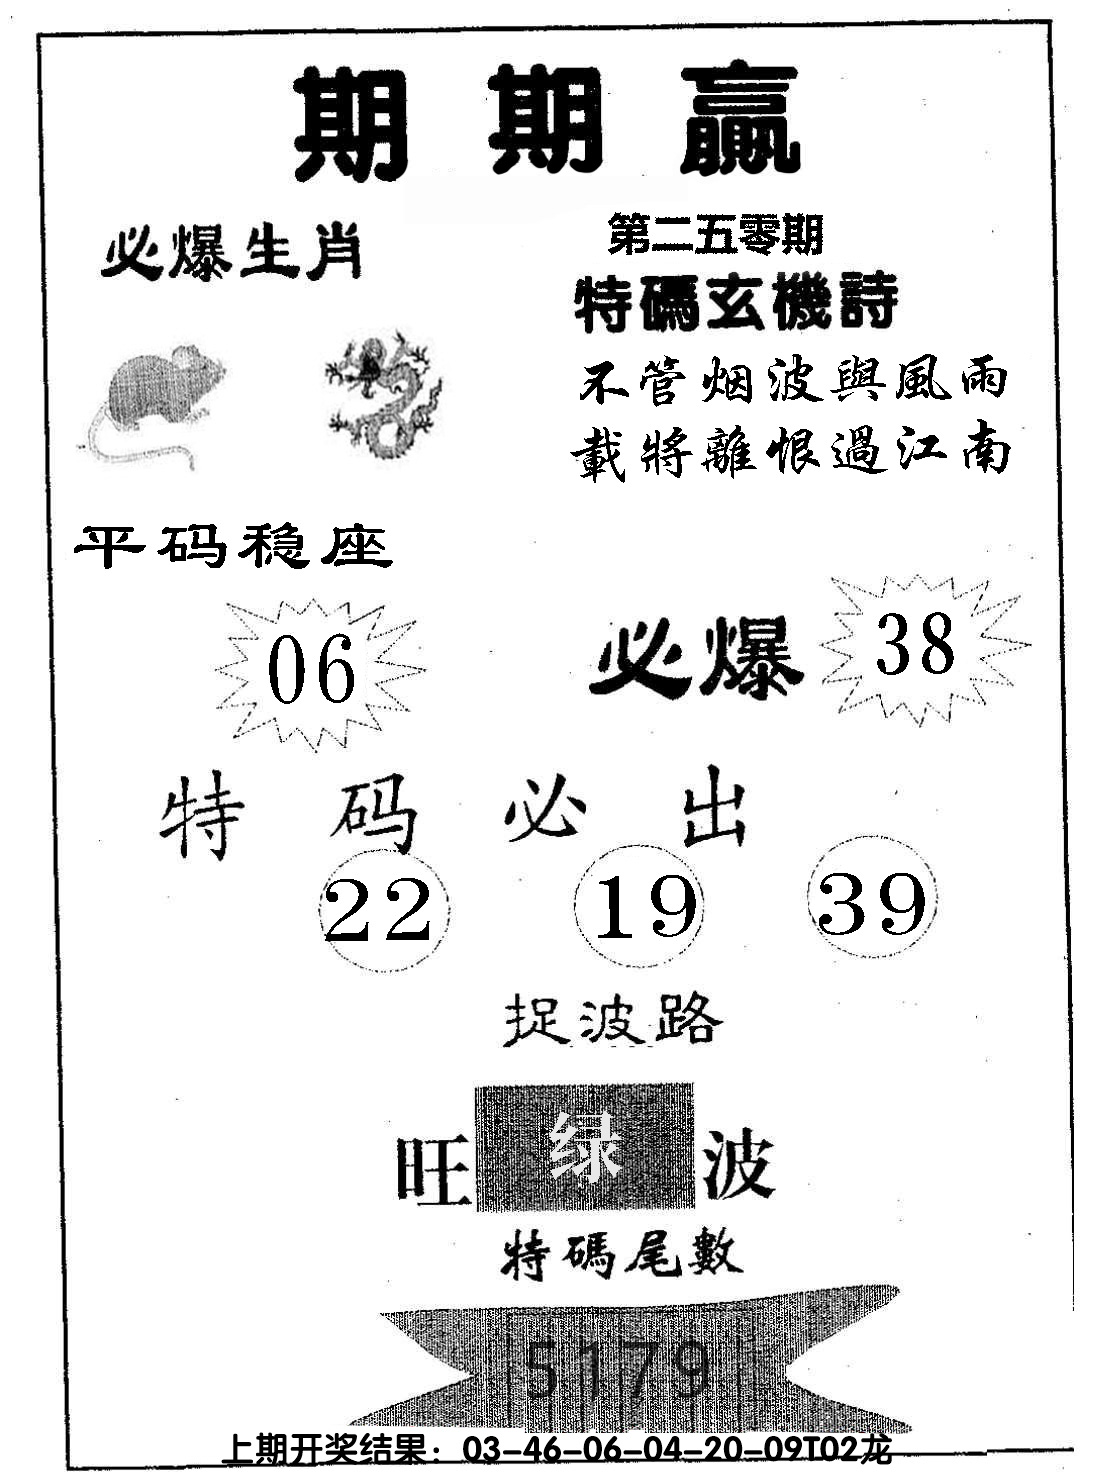 期期赢
必爆生肖
第二五零期
特碼玄機詩
不管烟波與風雨
載將離恨過江南
平码稳座
06
必爆 38
特码必出
22 19 39
捉波路
旺 绿 波
特碼尾數
5179
上期开奖结果：03-46-06-04-20-09T02龙